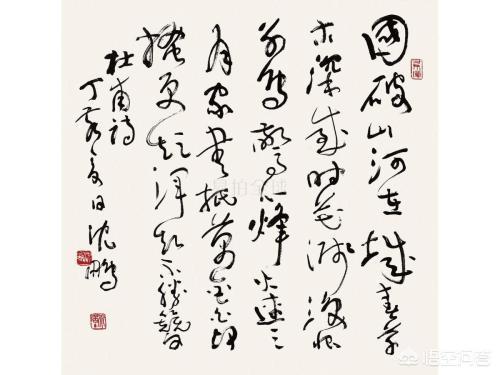 國破山河在城春草
木深感时花濺淚恨
别鸟驚心烽火連三
月家書抵萬金白頭
搔更短渾欲不勝簪
杜甫詩
丁亥夏日沈鵬
悟空问答